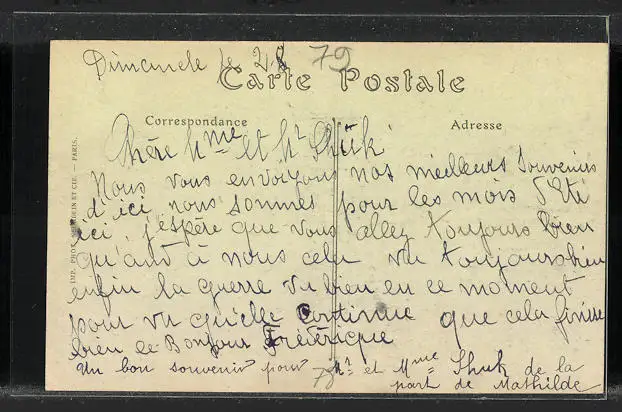 Dimanche le 28
79
Carte Postale
Correspondance
Adresse
Chère Mme et Mr Shuk
Nous vous envoyons nos meilleurs souvenirs
d'ici, nous sommes pour les mois d'Eté
ici, j'espère que vous allez toujours bien
qu'and à nous cela va toujours bien
enfin la guerre va bien en ce moment
pour vu qu'elle continue que cela finisse
bien le Bonjour Frédérique
Un bon souvenir pour Mr et Mme Shuk de la
part de Mathilde
IMP. PHOT. ET CIE. — PARIS.